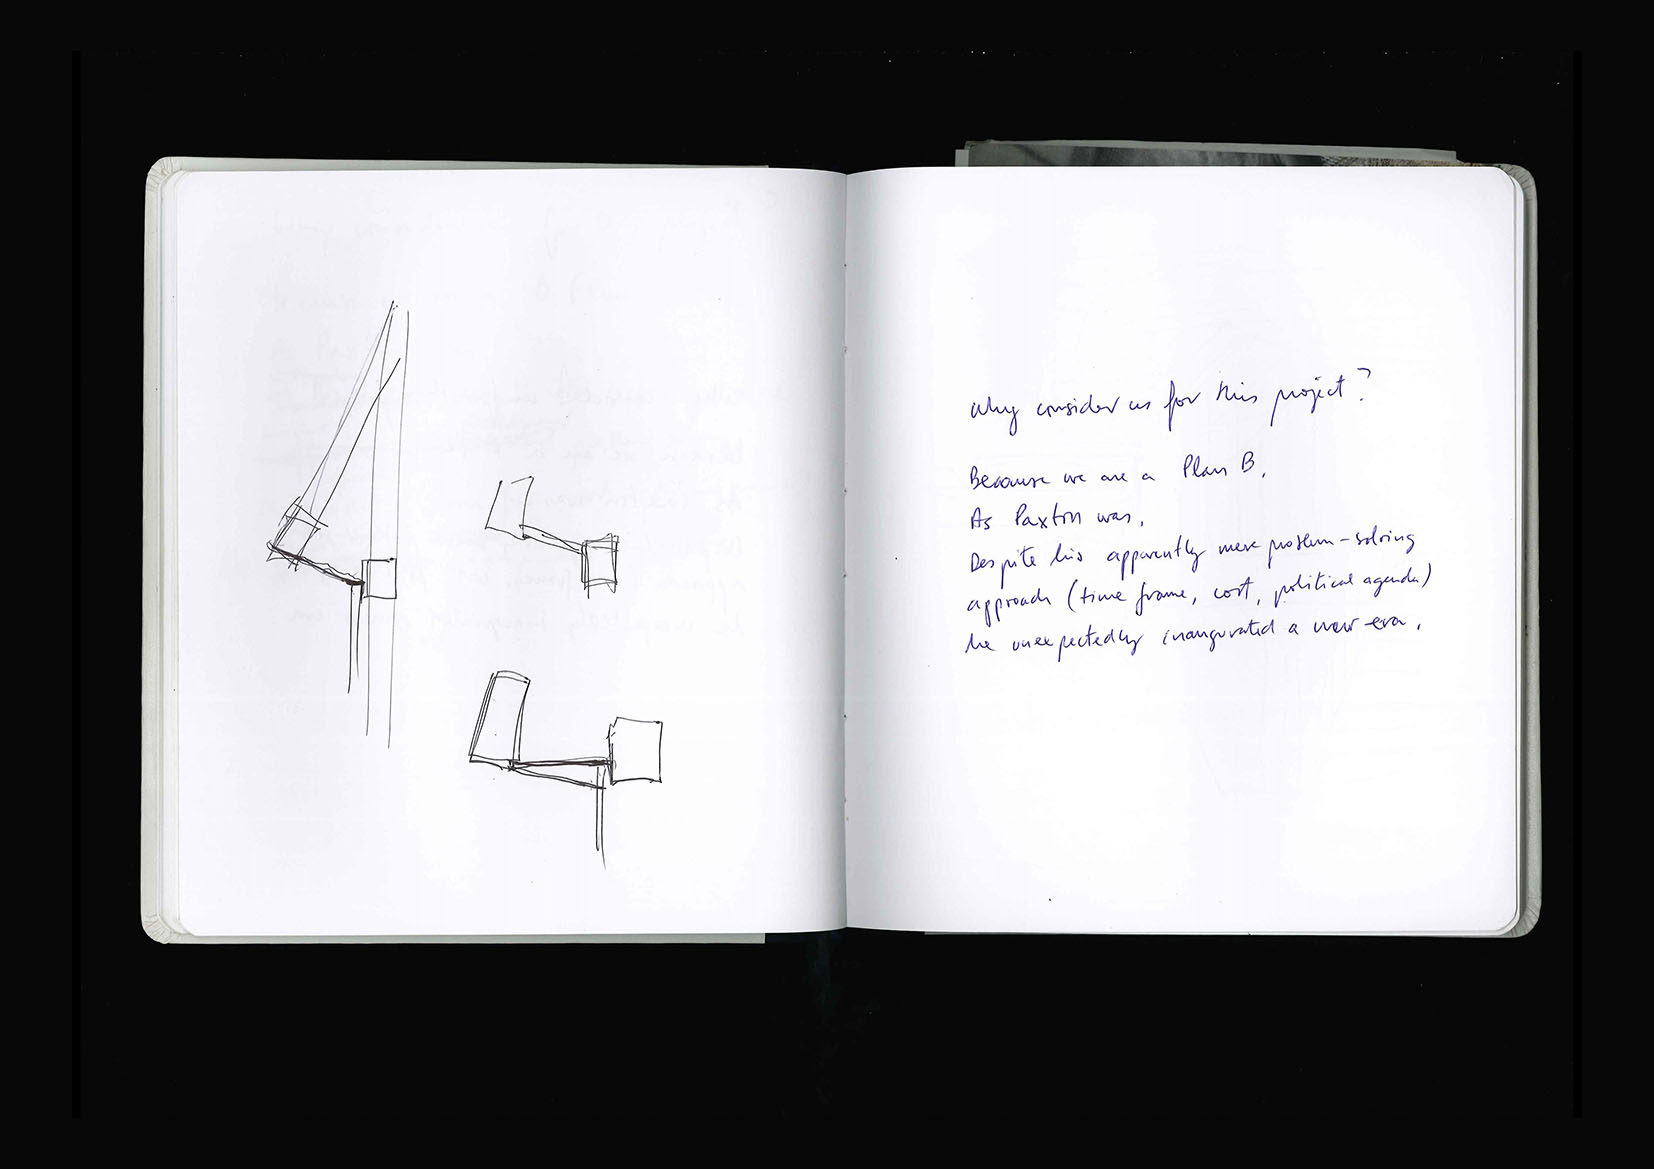 Why consider us for this project?
Because we are a Plan B.
As Paxton was.
Despite his apparently mere problem-solving
approach (time frame, cost, political agenda)
he unexpectedly inaugurated a new era.